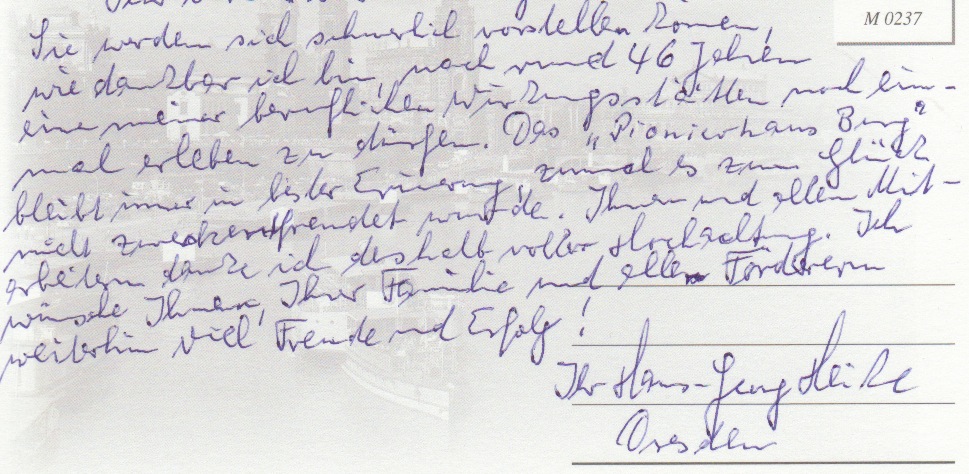 M 0237
Sie werden sich schwerlich vorstellen können,
wie dankbar ich bin, nach rund 46 Jahren
eine meiner beruflichen Wirkungsstätten noch ein-
mal erleben zu dürfen. Das „Pionierhaus Burg“
bleibt immer in bester Erinnerung, zumal es zum Glück
nicht zweckentfremdet wurde. Ihnen und allen Mit-
arbeitern danke ich deshalb voller Hochachtung. Ich
wünsche Ihnen, Ihrer Familie und allen Förderern
weiterhin viel Freude und Erfolg!
Ihr Hans-Georg
Dresden